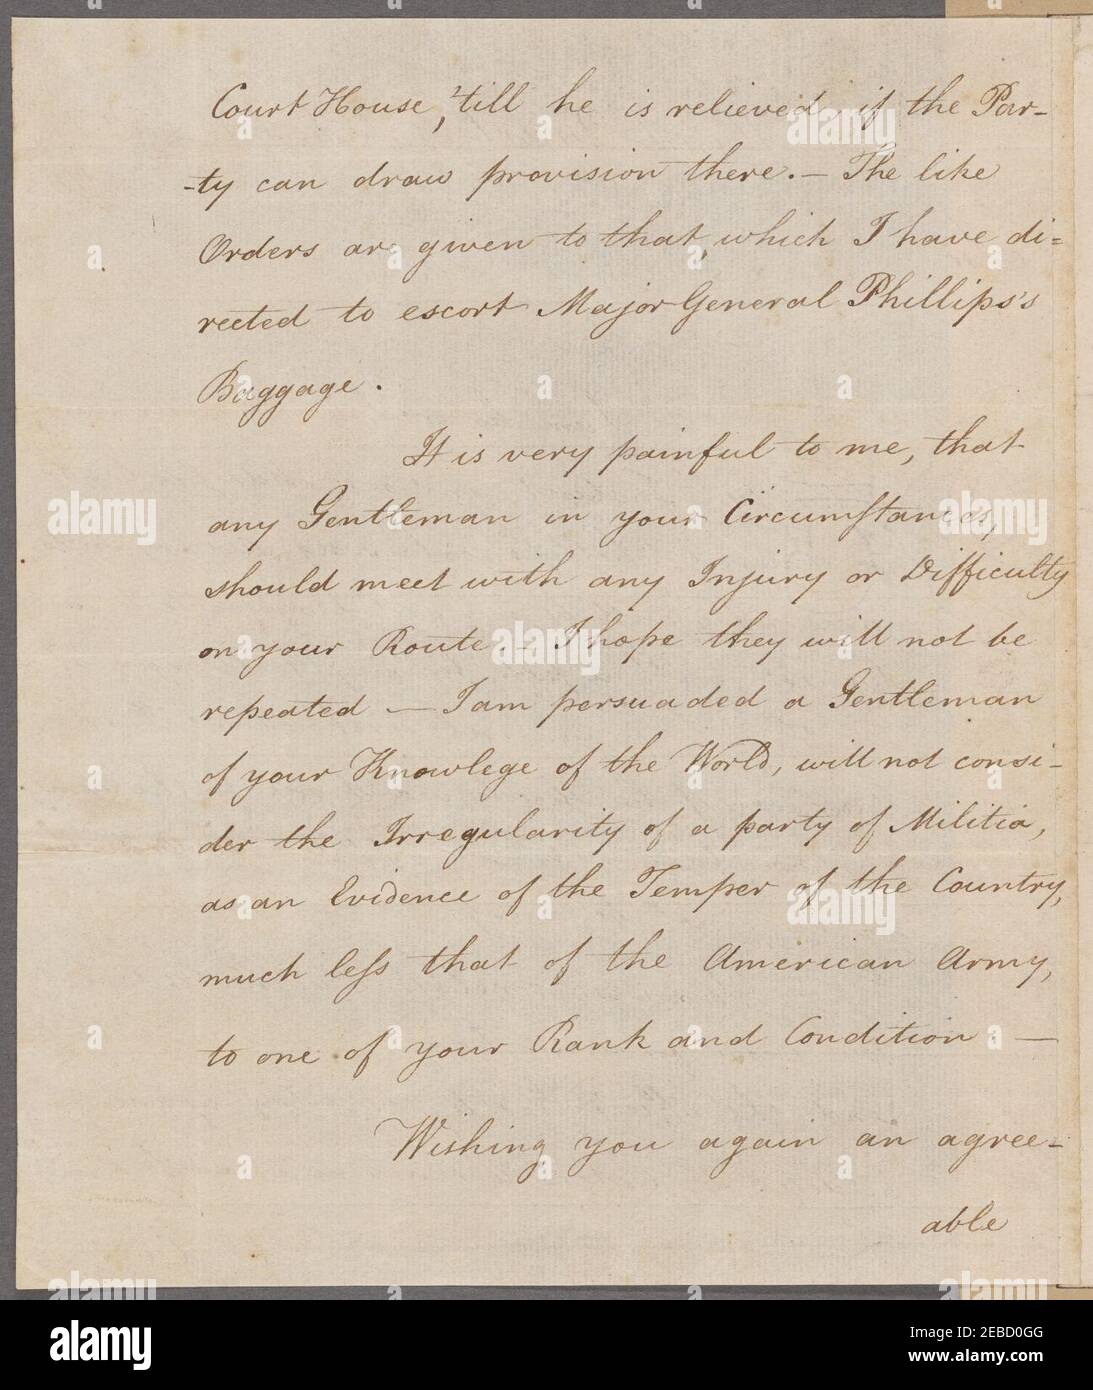 Court House, 'till he is relieved, if the Par-
-ty can draw provision there. — The like
Orders are given to that, which I have di=
rected to escort Major General Phillips's
Baggage.
It is very painful to me, that
any Gentleman in your Circumſtances,
should meet with any Injury or Difficulty
on your Route. — I hope they will not be
repeated — I am persuaded a Gentleman
of your Knowlege of the World, will not consi-
der the Irregularity of a party of Militia,
as an Evidence of the Temper of the Country,
much leſs that of the American Army,
to one of your Rank and Condition —
Wishing you again an agree-
able
alamy
Image ID: 2EBD0GG
www.alamy.com